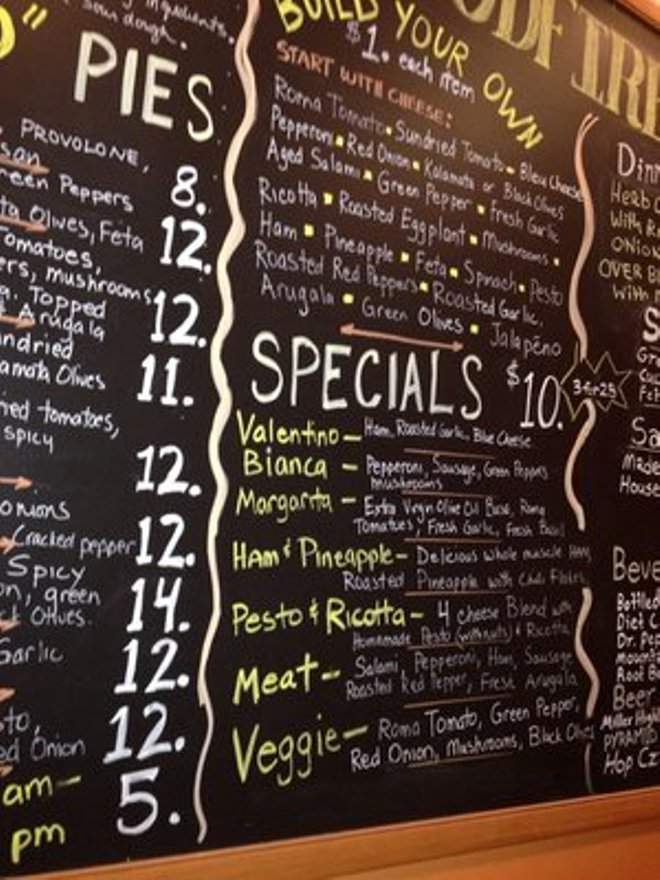 Ingredients.
sour dough.
PIES
PROVOLONE,
Green Peppers 8.
Olives, Feta 12.
Tomatoes,
mushrooms
Topped
Arugala 12.
Sundried
Kalamata Olives 11.
tomatoes,
Spicy
12.
onions
Cracked pepper 12.
Spicy
green
Olives. 14.
Garlic 12.
Onion 12.
am-
pm 5.
BUILD YOUR OWN
$1. each item
START WITH CHEESE:
Roma Tomato Sundried Tomato Bleu Cheese
Pepperoni Red Onion Kalamata or Black Olives
Aged Salami Green Pepper Fresh Garlic
Ricotta Roasted Eggplant Mushrooms
Ham Pineapple Feta Spinach Pesto
Roasted Red Peppers Roasted Garlic,
Arugala Green Olives Jalapeño
SPECIALS $10.
3 for 25
Valentino - Ham, Roasted Garlic, Blue Cheese
Bianca - Pepperoni, Sausage, Green Peppers
mushrooms
Margarita - Extra Virgin Olive Oil Base, Roma
Tomatoes, Fresh Garlic, Fresh Basil
Ham & Pineapple - Delicious whole muscle Ham,
Roasted Pineapple with Chili Flakes
Pesto & Ricotta - 4 cheese Blend with
Homemade Pesto (with nuts) & Ricotta
Meat - Salami, Pepperoni, Ham, Sausage
Roasted Red Pepper, Fresh Arugala
Veggie - Roma Tomato, Green Pepper,
Red Onion, Mushrooms, Black Olives
Herb
With
Onion
OVER
With
Made
House
Beve
Bottled
Diet C
Dr. Pe
Mount
Root B
Beer
Miller High
PYRAMID
Hop Cz